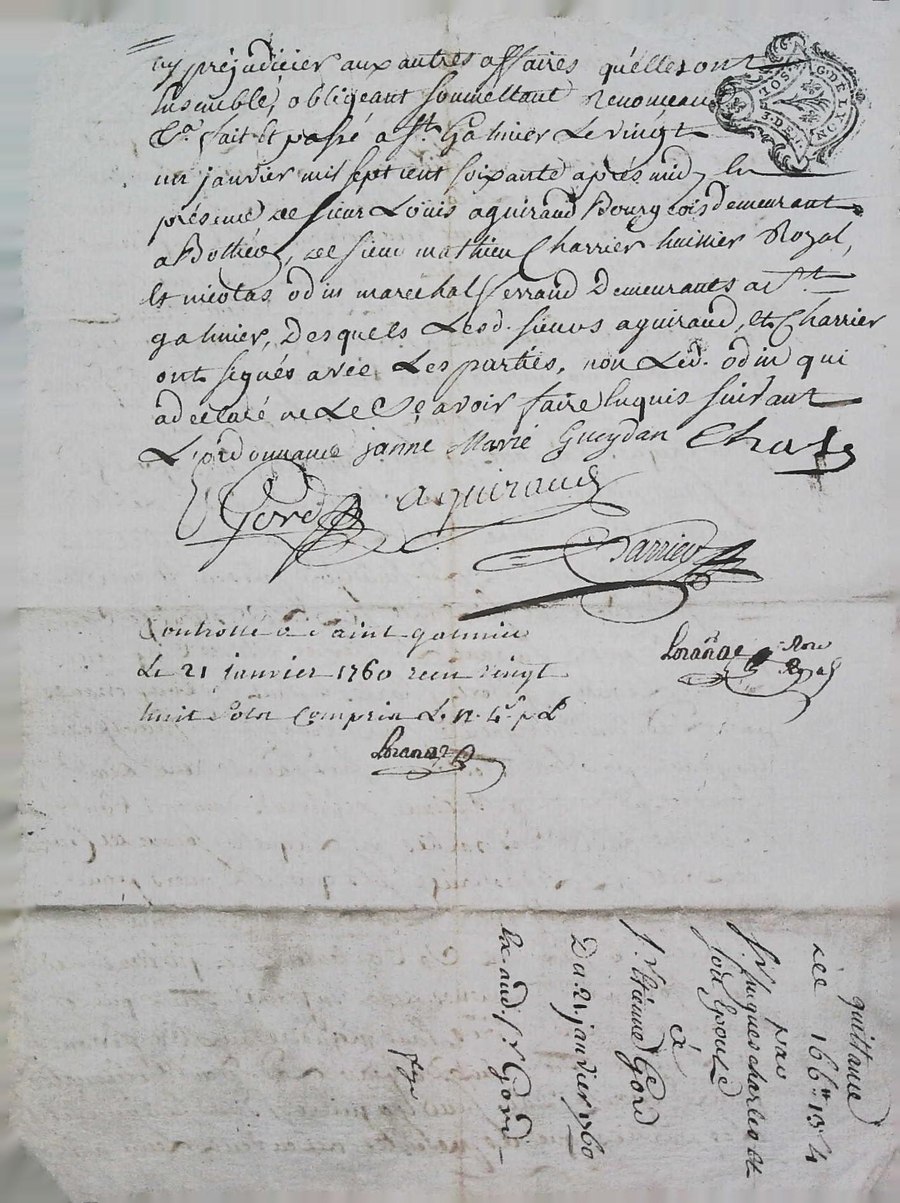 ny préjudicier aux autres affaires quélles ont
Ensemble, obligeant Soumettant Renonceant
&a. fait et passé a St. Galmier Le vingt
un janvier mil sept cent soixante après midy En
présence de sieur Louis aguiraud Bourgeois demeurant
a Bothéon, de sieur mathieu Charrier huissier Royal,
Et nicolas odin marechal ferrand Demeurants a St.
galmier, Desquels Lesd. sieurs aguiraud, et Charrier
ont signés avec Les parties, non Led. odin qui
a declaré ne Le Sçavoir faire Enquis suivant
L'ordonnance janne Marie Gueydan Charles
Gord aguiraud
Charrier
G. DE LYON
3. DEN.
Controllé a Saint galmier
Le 21 janvier 1760 recu vingt
huit Sols Compris Le
Lorange
Lorange Nore Royal
quittance
de 166 ₶ 13 s 4
par
Sr. hugues charles et
son Epouse
à
Sr. Etienne Gord
Du 21 janvier 1760
Exand. Sr Gord